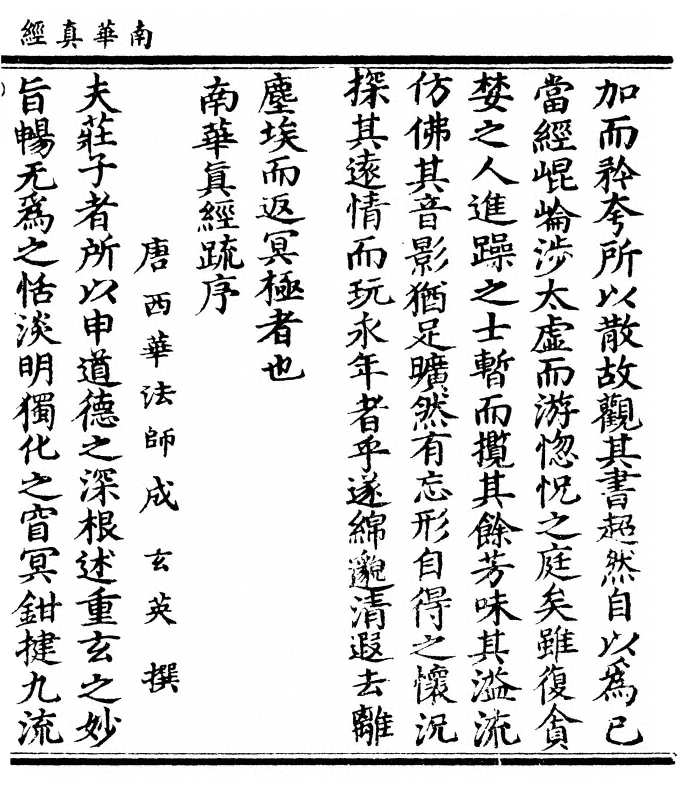 南華真經
加而矜夸所以散故觀其書超然自以爲已
當經崐崘涉太虛而游惚怳之庭矣雖復貪
婪之人進躁之士暫而攬其餘芳味其溢流
仿佛其音影猶足曠然有忘形自得之懷況
探其遠情而玩永年者乎遂綿邈清遐去離
塵埃而返冥極者也
南華真經疏序
唐西華法師成玄英撰
夫莊子者所以申道德之深根述重玄之妙
旨暢无爲之恬淡明獨化之窅冥鉗揵九流